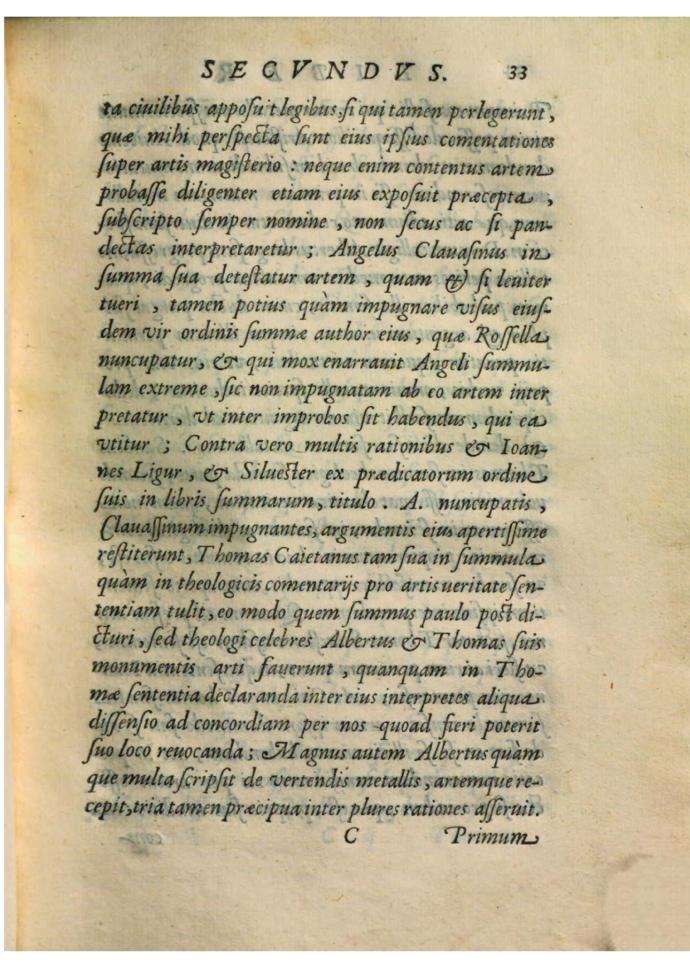 SECVNDVS. 33
ta ciuilibus apposuit legibus, si qui tamen perlegerunt,
quæ mihi perspecta sunt eius ipsius comentationes
super artis magisterio : neque enim contentus artem
probasse diligenter etiam eius exposuit præcepta ,
subscripto semper nomine , non secus ac si pan-
dectas interpretaretur ; Angelus Clauasinus in
summa sua detestatur artem , quam & si leuiter
tueri , tamen potius quàm impugnare visus eius-
dem vir ordinis summæ author eius , quæ Rossella
nuncupatur, & qui mox enarrauit Angeli summu-
lam extreme , sic non impugnatam ab eo artem inter
pretatur , vt inter improbos sit habendus , qui ea
vtitur ; Contra vero multis rationibus & Ioan-
nes Ligur , & Siluester ex prædicatorum ordine
suis in libris summarum, titulo . A. nuncupatis ,
Clauassinum impugnantes, argumentis eius apertissime
restiterunt, Thomas Caietanus tam sua in summula
quàm in theologicis comentarijs pro artis ueritate sen-
tentiam tulit, eo modo quem summus paulo post di-
cturi , sed theologi celebres Albertus & Thomas suis
monumentis arti fauerunt , quanquam in Tho-
mæ sententia declaranda inter eius interpretes aliqua
dissensio ad concordiam per nos quoad fieri poterit
suo loco reuocanda ; Magnus autem Albertus quàm
que multa scripsit de vertendis metallis , artemque re-
cepit, tria tamen præcipua inter plures rationes asseruit.
C Primum